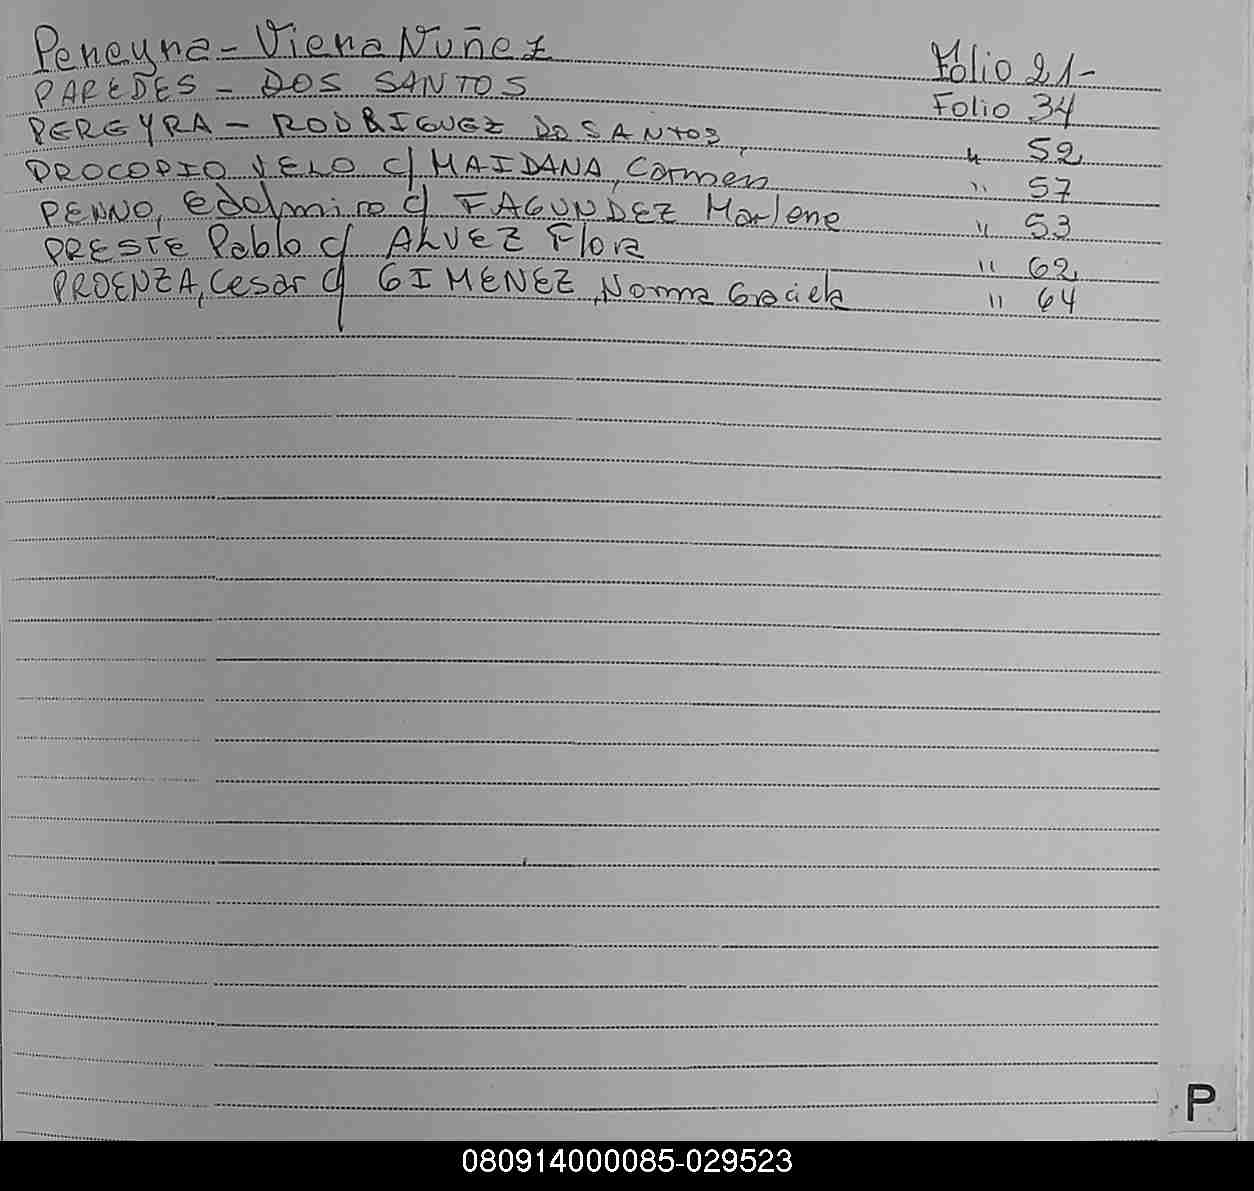 Pereyra - Viera Nuñez Folio 21-
PAREDES - DOS SANTOS Folio 34
PEREYRA - RODRIGUEZ DO SANTOS, " 52
PROCOPIO VELO c/ MAIDANA, Carmen " 57
PENNO, Edelmiro c/ FAGUNDEZ Marlene " 53
PRESTE Pablo c/ ALVEZ Flora " 62
PROENZA, Cesar c/ GIMENEZ, Norma Graciela " 64
P
080914000085-029523